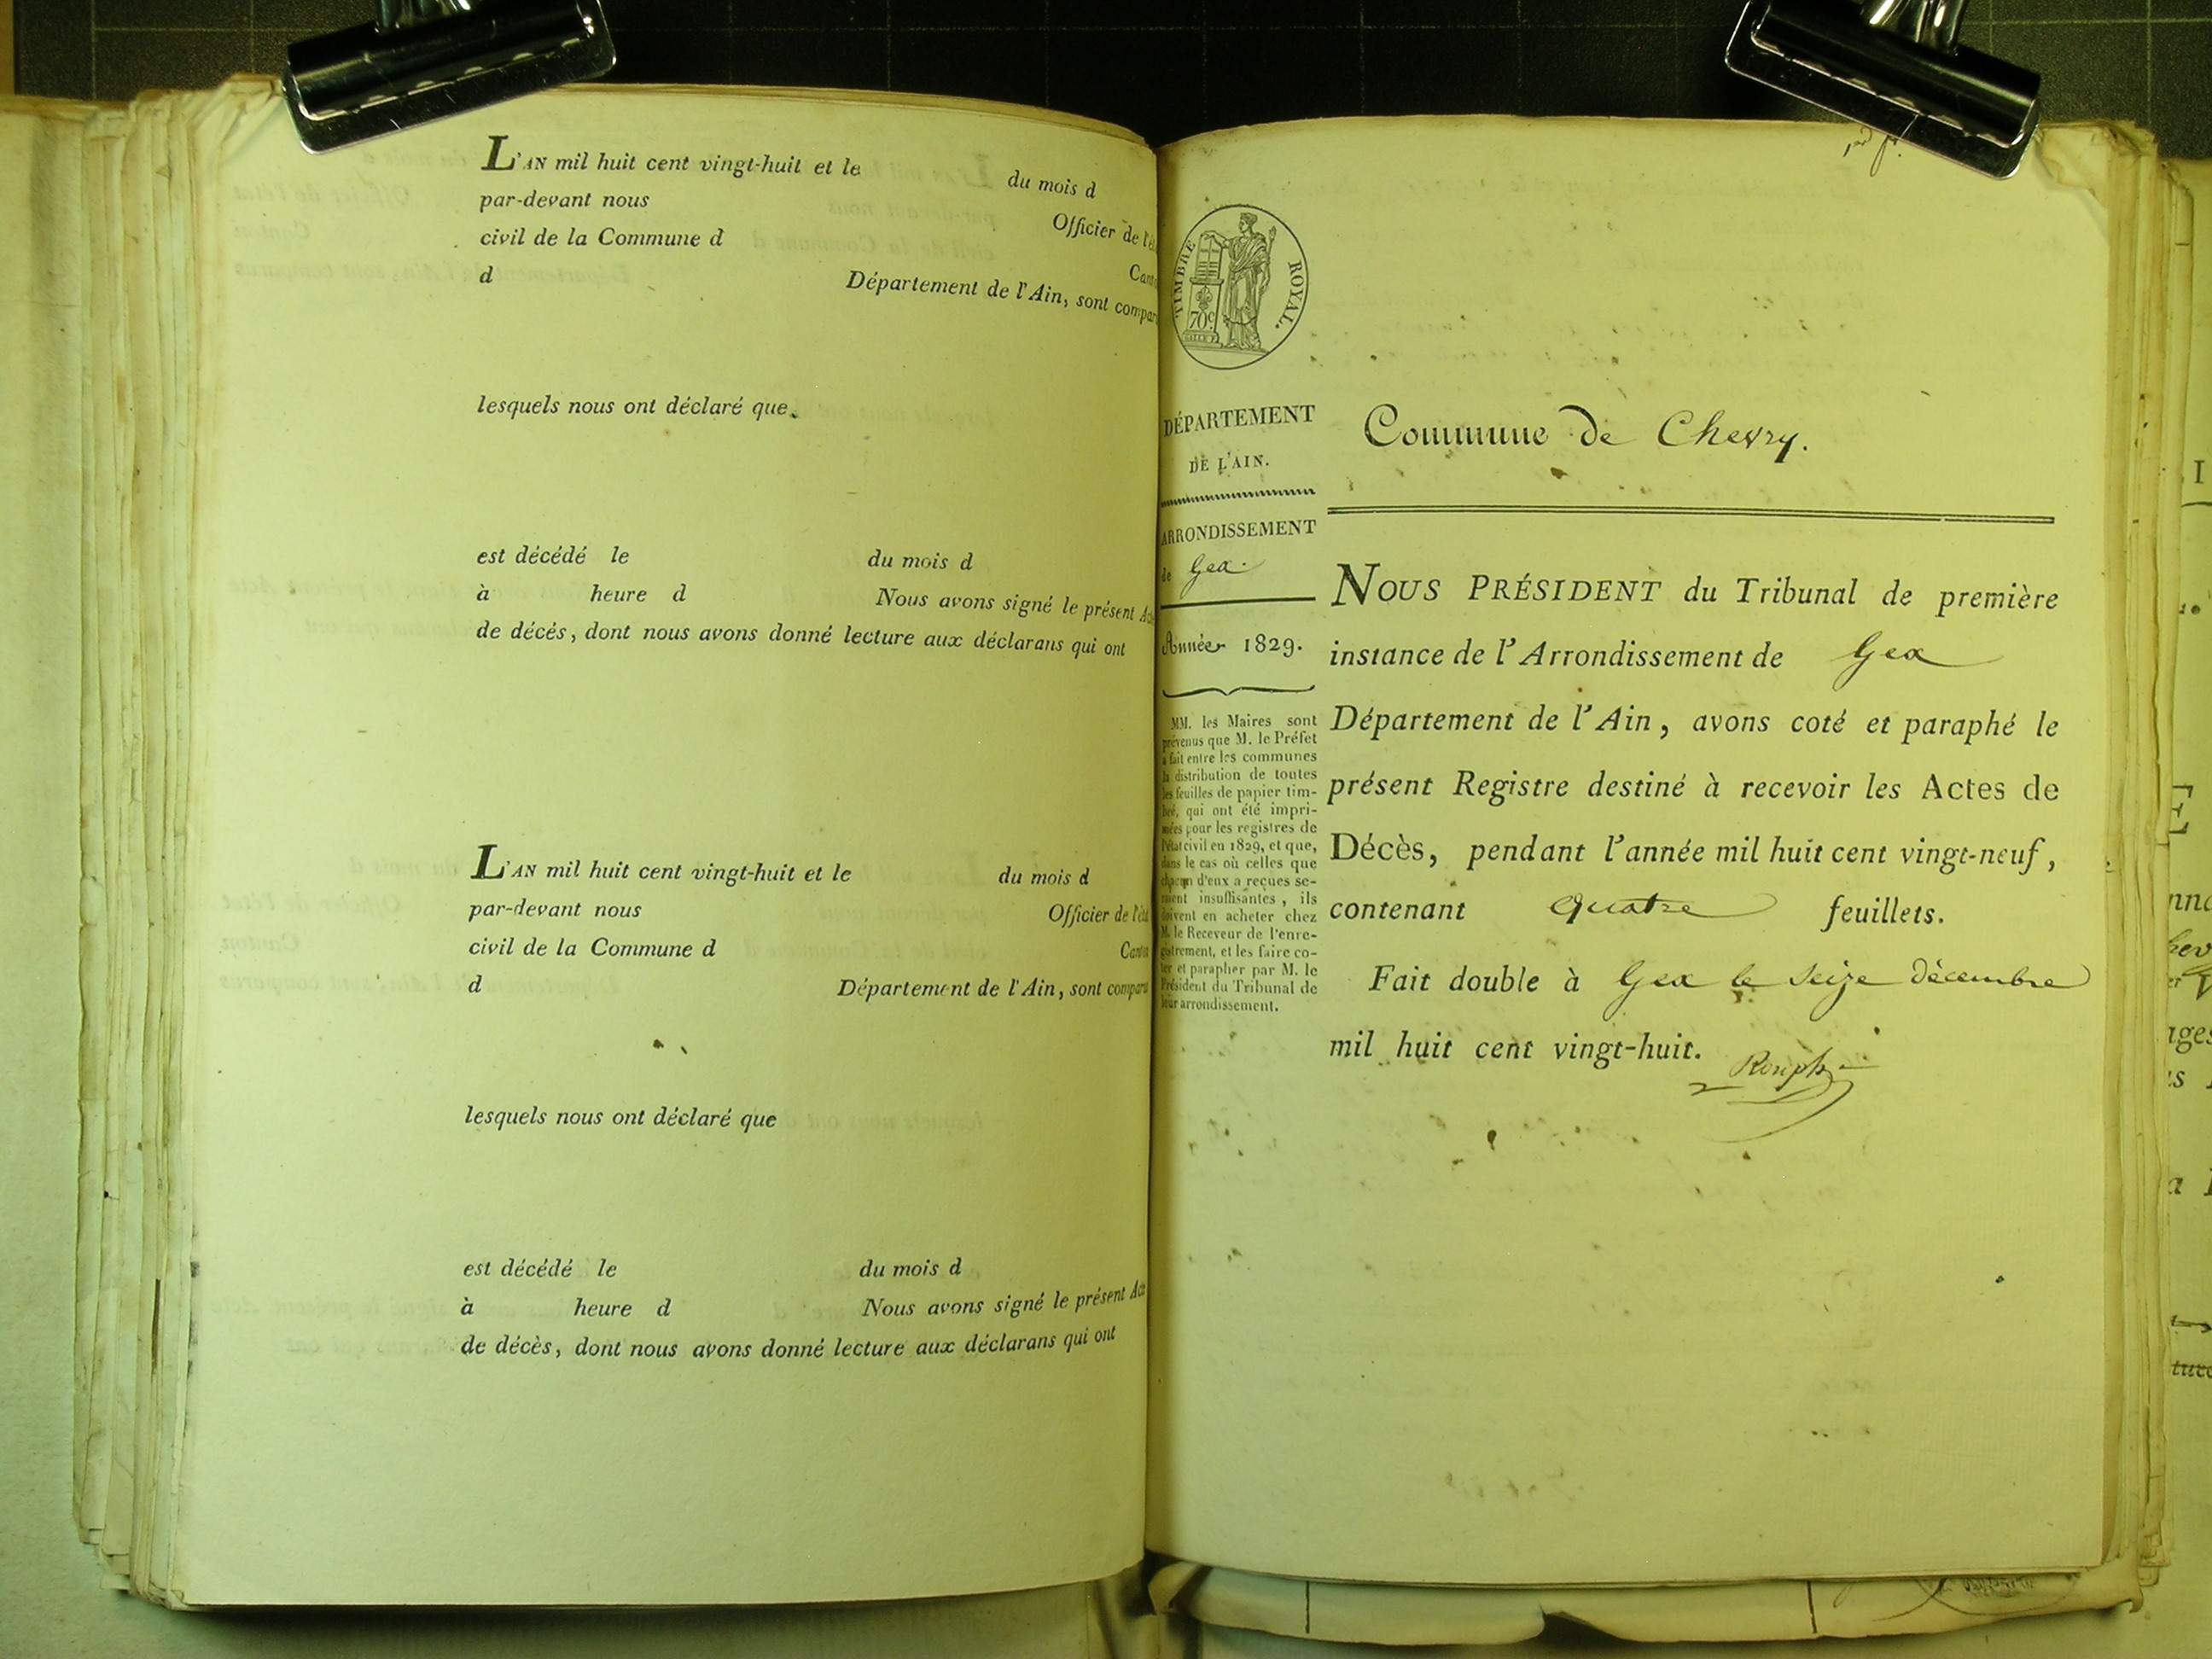 L'AN mil huit cent vingt-huit et le du mois d
par-devant nous Officier de l'ét
civil de la Commune d Cant
d Département de l'Ain, sont compar
lesquels nous ont déclaré que
est décédé le du mois d
à heure d Nous avons signé le présent Ac
de décès, dont nous avons donné lecture aux déclarans qui ont
L'AN mil huit cent vingt-huit et le du mois d
par-devant nous Officier de l'éta
civil de la Commune d Canton
d Département de l'Ain, sont compara
lesquels nous ont déclaré que
est décédé le du mois d
à heure d Nous avons signé le présent Acte
de décès, dont nous avons donné lecture aux déclarans qui ont
TIMBRE ROYAL.
70c
DÉPARTEMENT
DE L'AIN.
ARRONDISSEMENT
de Gex.
Année 1829.
MM. les Maires sont
prévenus que M. le Préfet
a fait entre les communes
la distribution de toutes
les feuilles de papier tim-
bré, qui ont été impri-
mées pour les registres de
l'état civil en 1829, et que,
dans le cas où celles que
chacun d'eux a reçues se-
raient insuffisantes, ils
doivent en acheter chez
M. le Receveur de l'enre-
gistrement, et les faire co-
ter et parapher par M. le
Président du Tribunal de
leur arrondissement.
Commune de Chevry.
NOUS PRÉSIDENT du Tribunal de première
instance de l'Arrondissement de Gex
Département de l'Ain, avons coté et paraphé le
présent Registre destiné à recevoir les Actes de
Décès, pendant l'année mil huit cent vingt-neuf,
contenant quatre feuillets.
Fait double à Gex le seize décembre
mil huit cent vingt-huit.